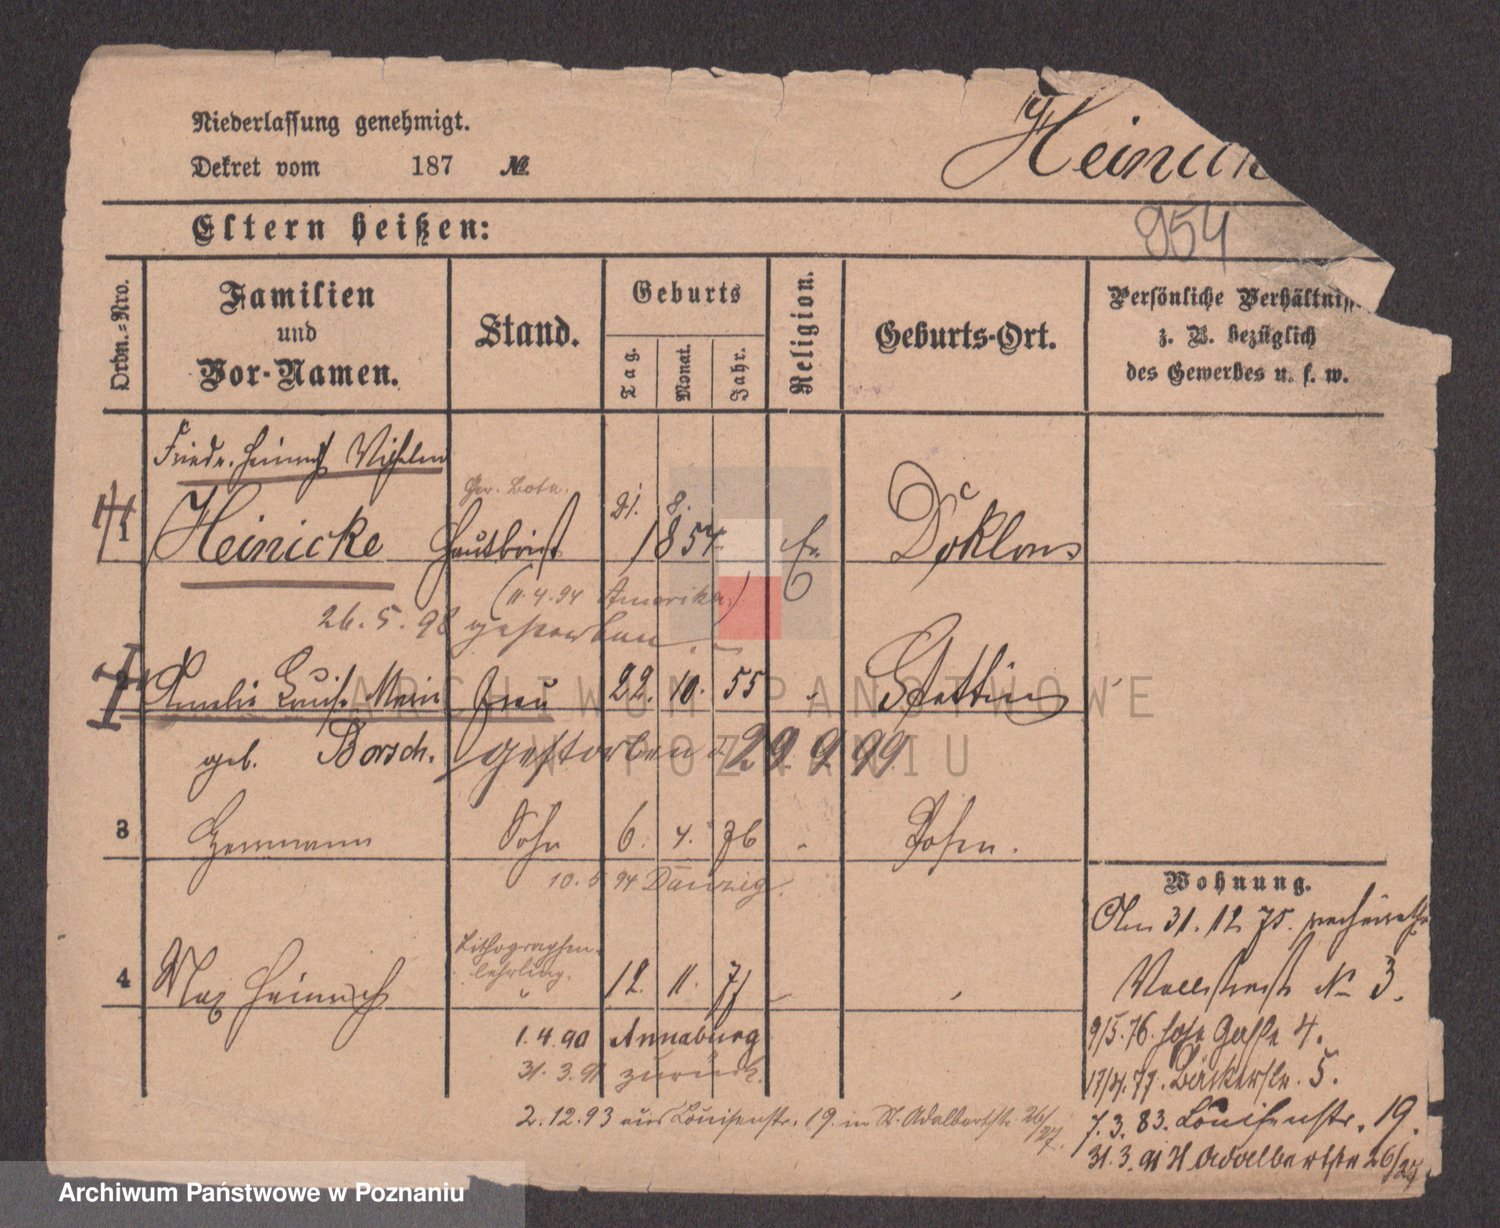 Niederlassung genehmigt.
Dekret vom 187 №
Heinick
954
Eltern heißen:
Ordn.-Nro.
Familien und Vor-Namen.
Stand.
Geburts
Tag.
Monat.
Jahr.
Religion.
Geburts-Ort.
Persönliche Verhältniss
z. B. bezüglich
des Gewerbes u. s. w.
Friedr. Heinrich Wilhelm
Ger. Bote.
21. 8.
1 Heinicke 1854 Ev
(11.4.94 Amerika)
26.5.98 gestorben.
Amelie Louise Marie Frau 22. 10. 55 Stettin
geb. Borsch. gestorben d. 29.9.99
3 Hermann Sohn 6. 4. 76 Posen.
10.5 94 Danzig.
Lithographen-
lehrling.
4 Max Heinrich " 12. 11. 77
1.4.90 Annaburg
31.3.91 zurück.
2.12.93 aus Louisenstr. 19. in St. Adalbertstr. 26/27.
Wohnung.
Am 31.12 75. verheirathe
Wallstraße № 3.
9/5.76. hohe Gasse 4.
17/4.77. Bäckerstr. 5.
7.3.83. Louisenstr. 19.
31.3.91 St Adalbertstr 26/27
ARCHIWUM PAŃSTWOWE
W POZNANIU
Archiwum Państwowe w Poznaniu